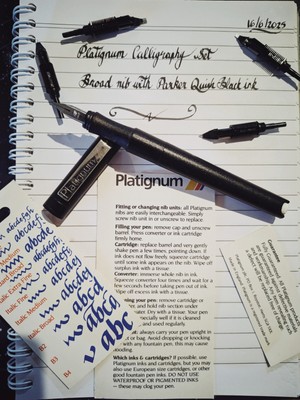 16/6/2025
Platignum Calligraphy Set
Broad nib with Parker Quink Black ink
Platignum
Platignum
Fitting or changing nib units: all Platignum
nibs are easily interchangeable. Simply
screw nib unit in or unscrew to replace.
Filling your pen: remove cap and unscrew
barrel. Press converter or ink cartridge
firmly home.
Cartridge: replace barrel and very gently
shake pen a few times, pointing down. If
ink does not flow freely, squeeze cartridge
until some ink appears on the nib. Wipe off
surplus ink with a tissue.
Converter: immerse whole nib in ink.
Squeeze converter four times and wait for a
few seconds before taking pen out of ink.
Wipe off excess ink with a tissue.
your pen: remove cartridge or
and hold nib section under
water. Dry with a tissue. Your pen
especially well if it is cleaned
and used regularly.
always carry your pen upright in
or bag. Avoid dropping or knocking
with any fountain pen, this may cause
flooding.
Which inks & cartridges? If possible, use
Platignum inks and cartridges, but you may
also use European size cartridges, or other
good fountain pen inks. DO NOT USE
WATERPROOF OR PIGMENTED INKS
– these may clog your pen.
abcdef
abcdef
abcdef
abcdef
abcde
abcd
abca
abc
Italic Fine
Italic Medium
Italic Broad
B2
B3
B4